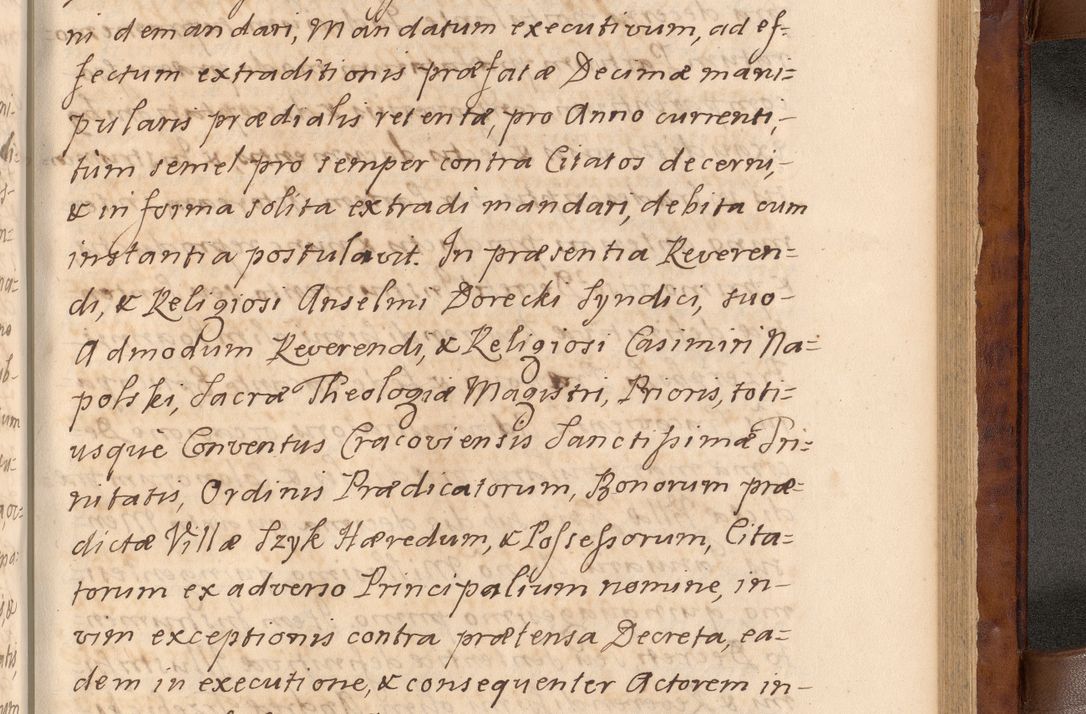 ni demandari, Mandatum executivum, ad ef-
fectum extraditionis præfatæ Decimæ mani=
pularis prædialis retentæ, pro Anno currenti,-
tùm semel pro semper contra Citatos decerni,-
& in forma solita extradi mandari, debita cum
instantia postulavit. In præsentia Reveren=
di, & Religiosi Anselmi Dorecki Syndici, suo-
Admodum Reverendi, & Religiosi Casimiri Na=
polski, Sacræ Theologiæ Magistri, Prioris, toti=
usquè Conventus Cracoviensis Sanctissimæ Tri=
nitatis, Ordinis Prædicatorum, Bonorum præ-
dictæ Villæ Szyk Hæredum, & Possessorum, Cita=
torum ex adverso Principalium nomine, in-
vim exceptionis contra prætensa Decreta, ea=
dem in executione, & consequenter Actorem in-